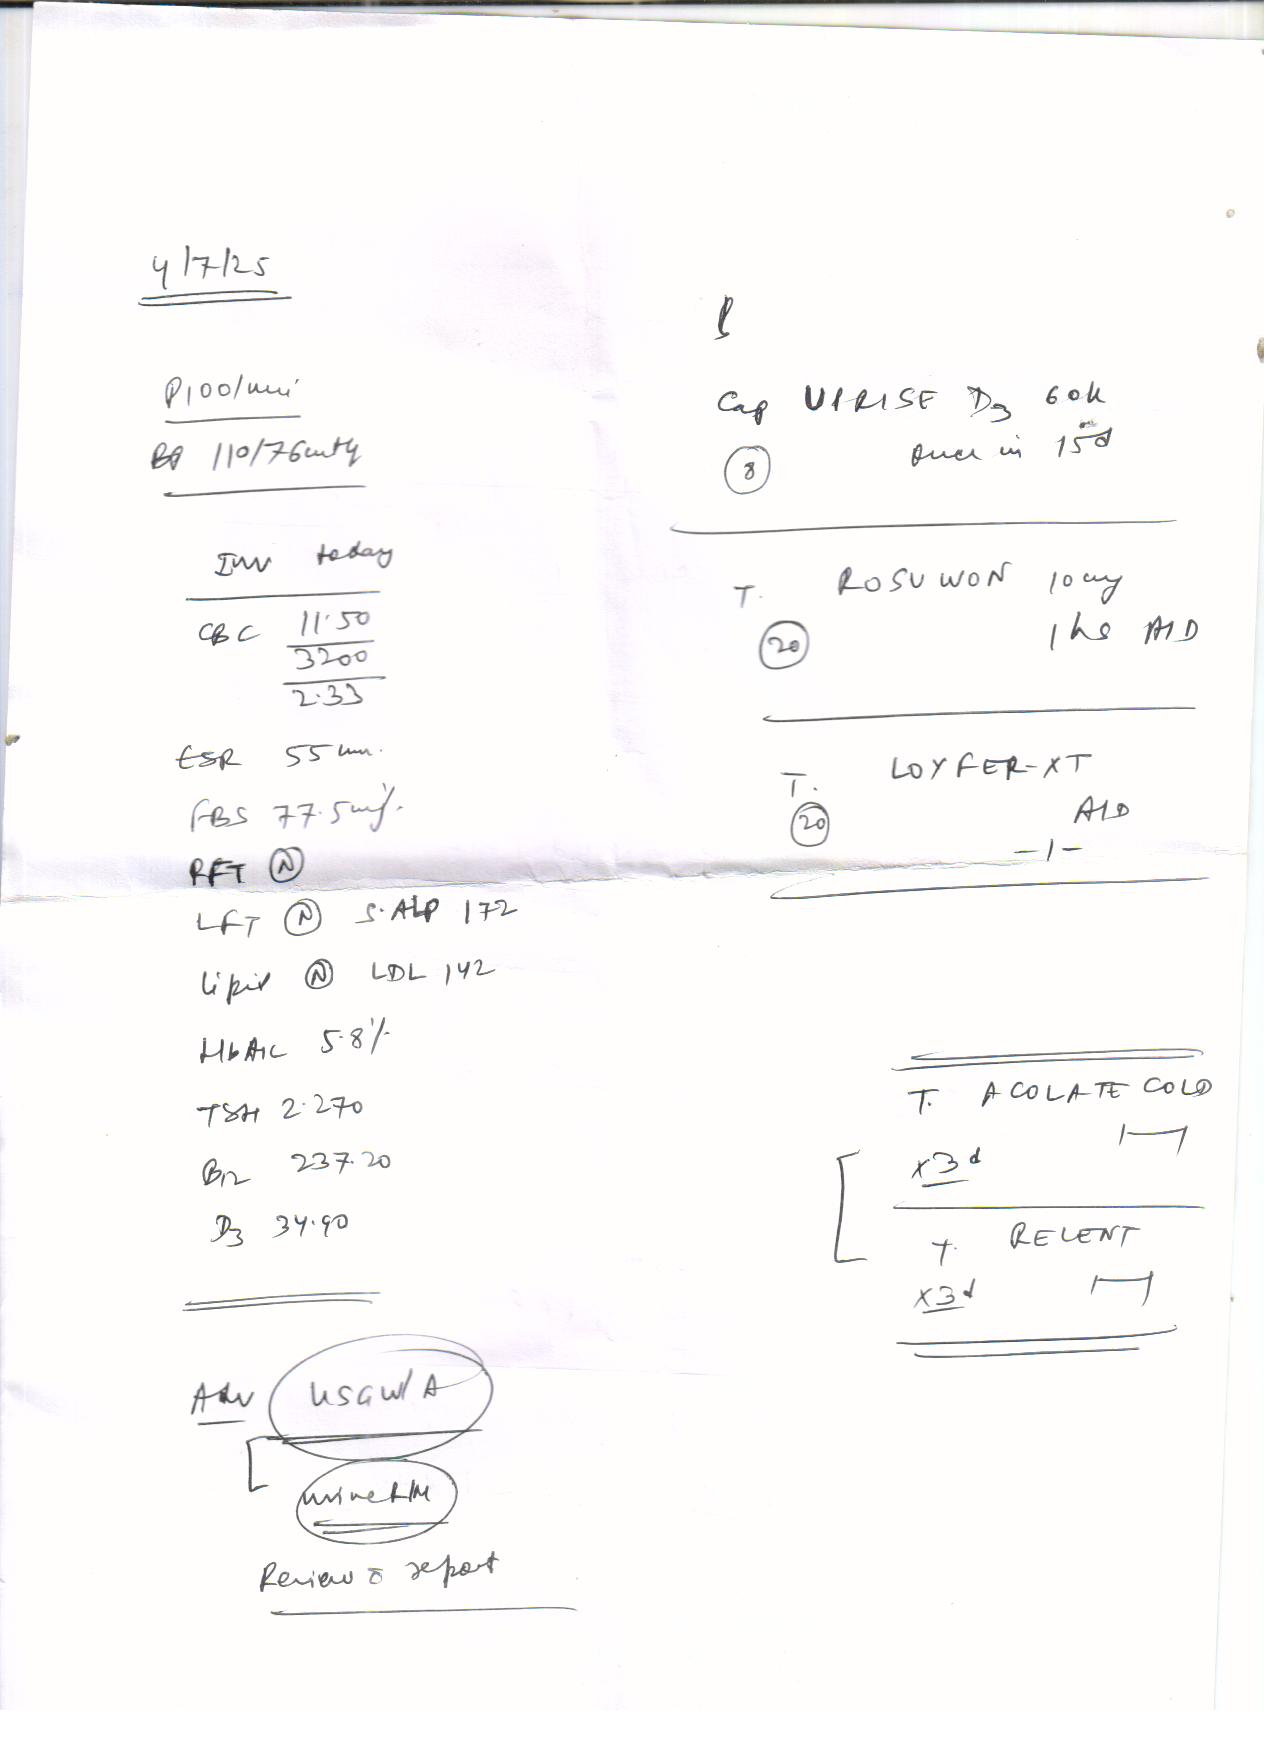 4/7/25
P 100/min
BP 110/76 mmHg
INV today
CBC 11.50
3200
2.33
ESR 55 mm.
FBS 77.5 mg%
RFT (N)
LFT (N) S.ALP 172
Lipid (N) LDL 142
HbA1c 5.8%
TSH 2.270
B12 237.20
D3 34.90
Adv USG W/A
urine R/M
Review c̄ report
Cap UPRISE D3 60k
8
once in 15d
T. ROSUWON 10 mg
20
1 hs A/D
T. LOYFER-XT
20
A/D
-1-
T. ACOLATE COLD
x3d
T. RELENT
x3d